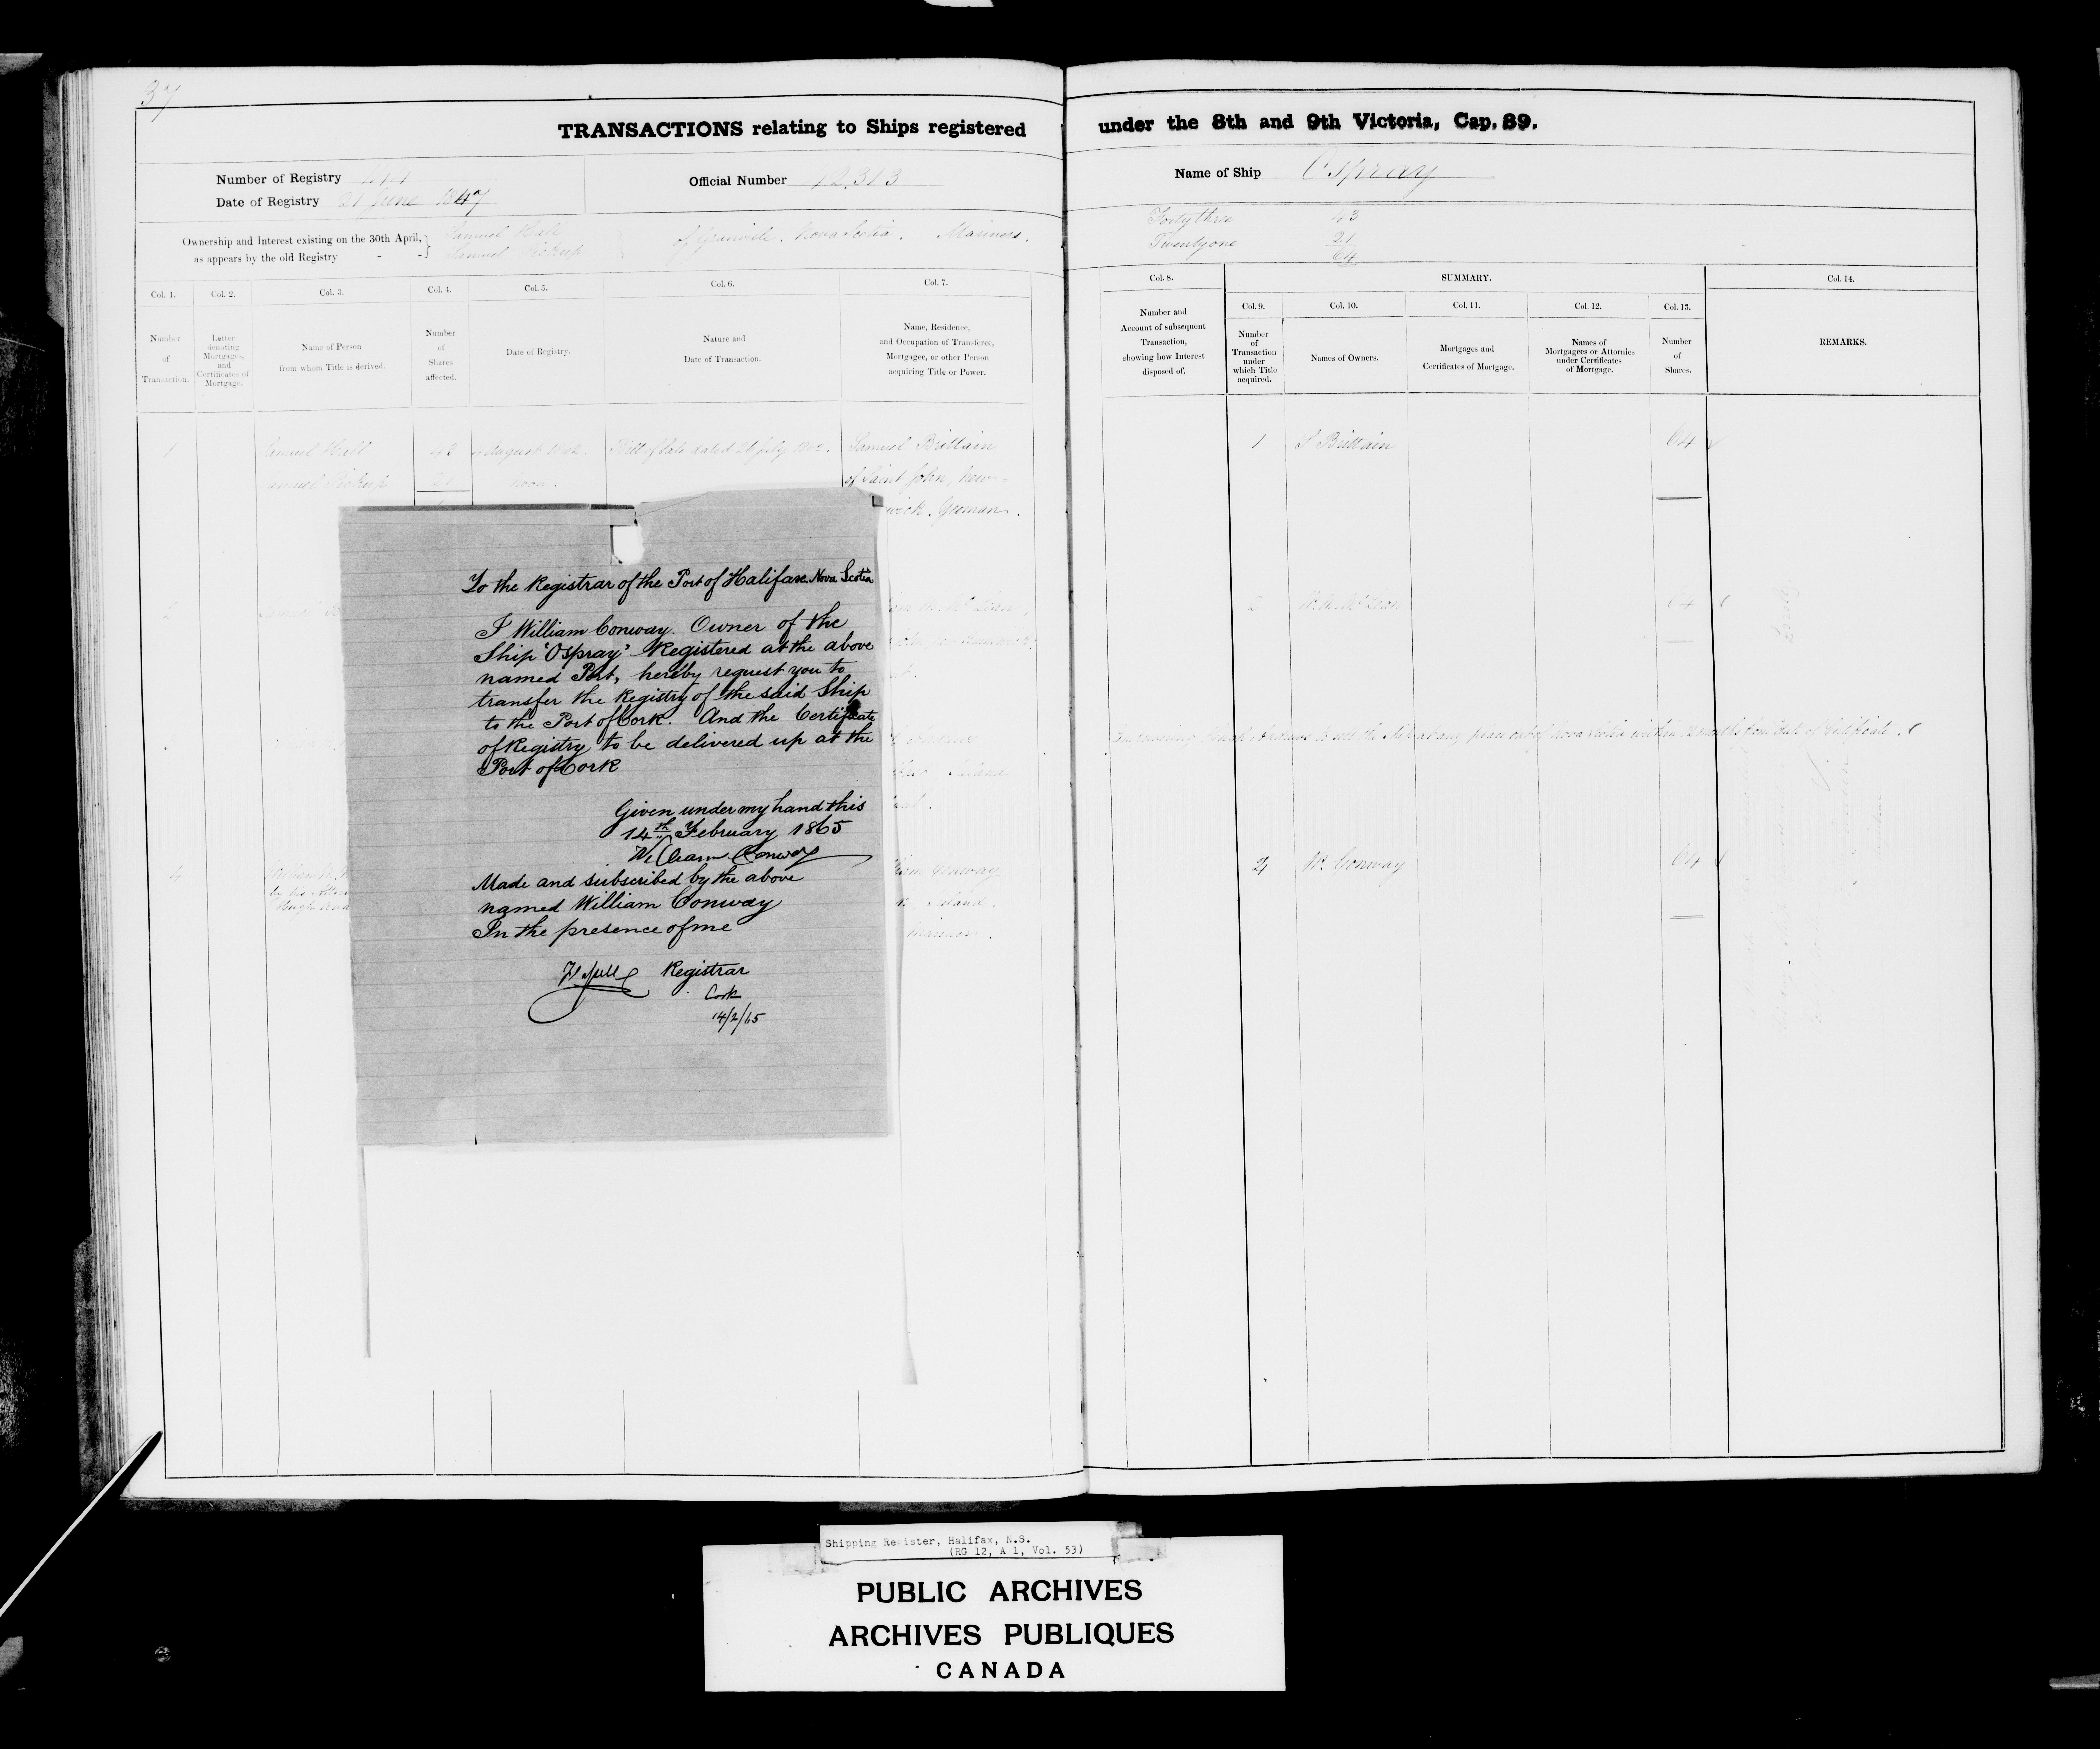 37
TRANSACTIONS relating to Ships registered
under the 8th and 9th Victoria, Cap. 89.
Number of Registry 141
Date of Registry 21 June 1847
Official Number 12,313
Name of Ship Ospray
Ownership and Interest existing on the 30th April,
as appears by the old Registry - -
Samuel Hall
Samuel Pickup
of Granville. Nova Scotia. Mariners.
Forty three 43
Twenty one 21
64
Col. 1.
Number
of
Transaction.
Col. 2.
Letter
denoting
Mortgages,
and
Certificates of
Mortgage.
Col. 3.
Name of Person
from whom Title is derived.
Col. 4.
Number
of
Shares
affected.
Col. 5.
Date of Registry.
Col. 6.
Nature and
Date of Transaction.
Col. 7.
Name, Residence,
and Occupation of Transferee,
Mortgagee, or other Person
acquiring Title or Power.
Col. 8.
Number and
Account of subsequent
Transaction,
showing how Interest
disposed of.
SUMMARY.
Col. 9.
Number
of
Transaction
under
which Title
acquired.
Col. 10.
Names of Owners.
Col. 11.
Mortgages and
Certificates of Mortgage.
Col. 12.
Names of
Mortgagees or Attornies
under Certificates
of Mortgage.
Col. 13.
Number
of
Shares.
Col. 14.
REMARKS.
1 Samuel Hall 43 August 1862. Bill of Sale dated 26 July 1862. Samuel Brittain
Samuel Pickup 21 noon. of Saint John, New-
wick. Yeoman.
1 S Brittain 64
2
2 W. M. McLean 64
4
by his Attor
Hugh
iam Conway
Island.
Mariner.
4 W. Conway 64
To the Registrar of the Port of Halifax Nova Scotia
I William Conway. Owner of the
Ship 'Ospray' Registered at the above
named Port, hereby request you to
transfer the Registry of the said Ship
to the Port of Cork. And the Certificate
of Registry to be delivered up at the
Port of Cork
Given under my hand this
14th February 1865
William Conway
Made and subscribed by the above
named William Conway
In the presence of me
Registrar
Cork
14/2/65
Shipping Register, Halifax, N.S.
(RG 12, A 1, Vol. 53)
PUBLIC ARCHIVES
ARCHIVES PUBLIQUES
CANADA